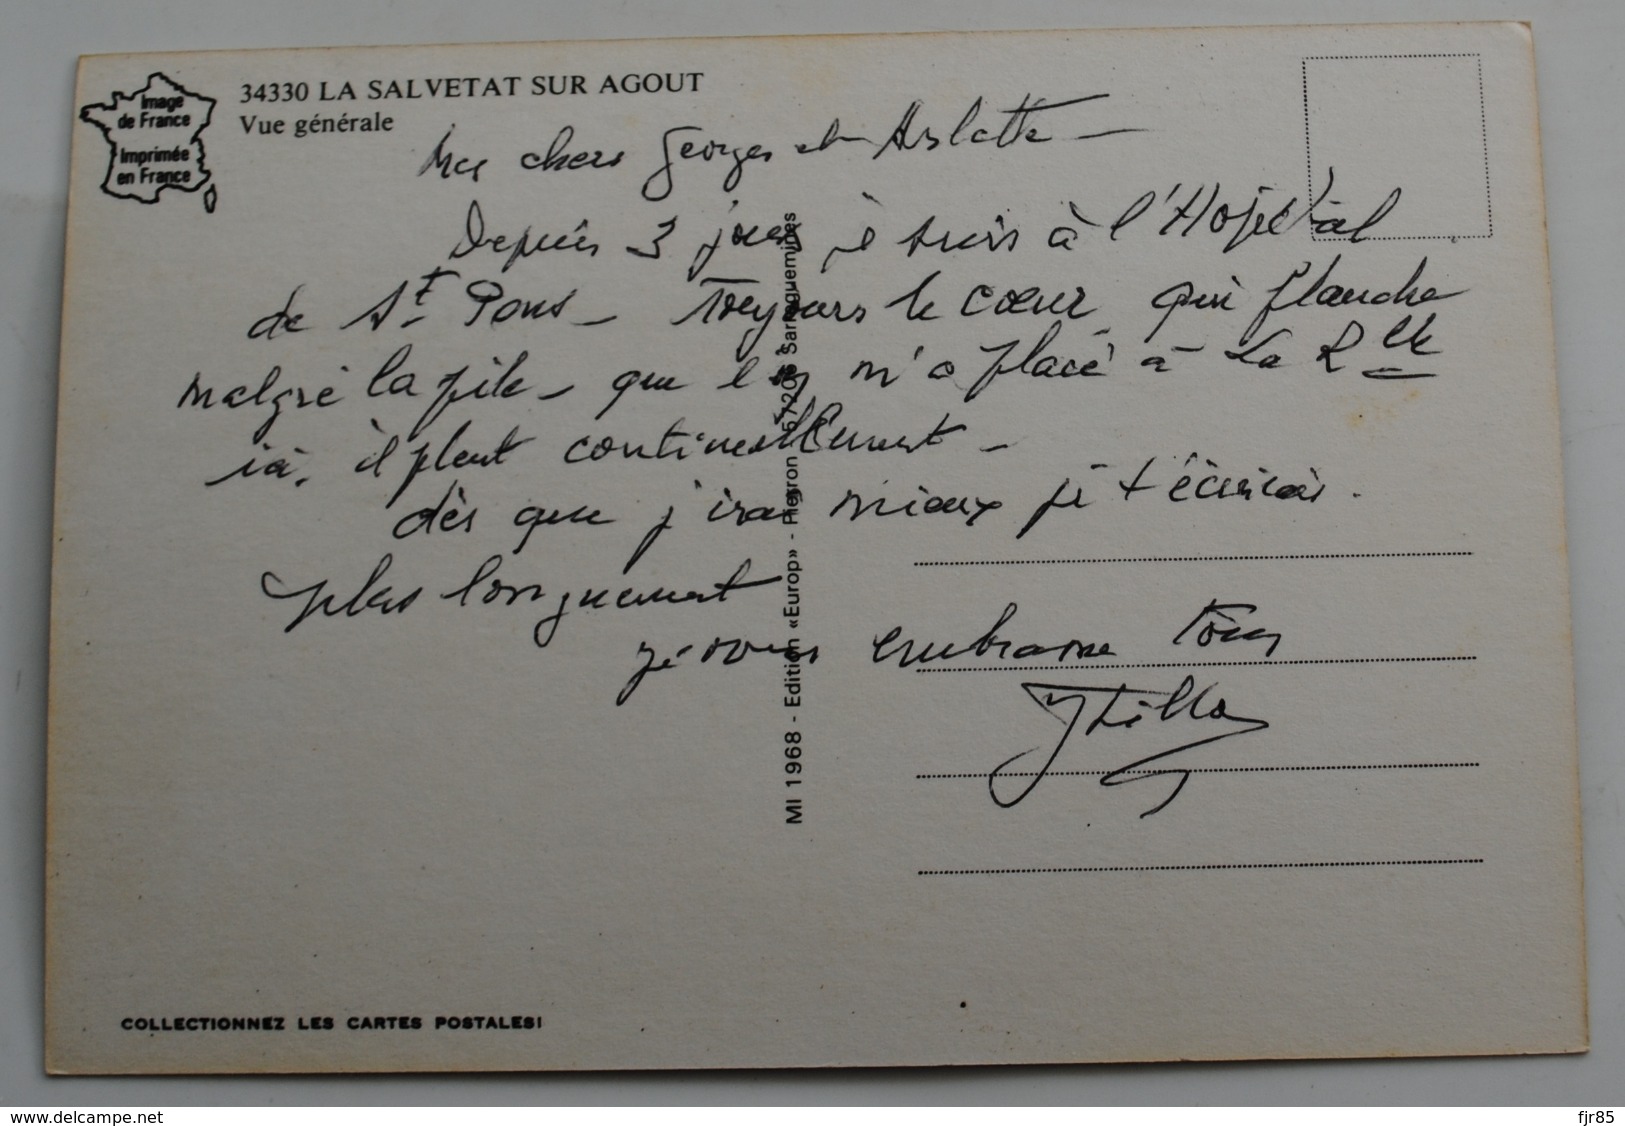 34330 LA SALVETAT SUR AGOUT
Vue générale
Image
de France
Imprimée
en France
Mes chers Georges et Arlette -
Depuis 3 jours je suis à l'Hopital
de St Pons - Toujours le cœur qui flanche
malgré la pile - que l'on m'a placé à La Rlle
ici, il pleut continuellement -
dès que j'irai mieux je t'écrirai.
plus longuement
je vous embrasse tous
MI 1968 - Edition «Europ» - Pierron - 57206 Sarreguemines
COLLECTIONNEZ LES CARTES POSTALES!
www.delcampe.net
fjr85